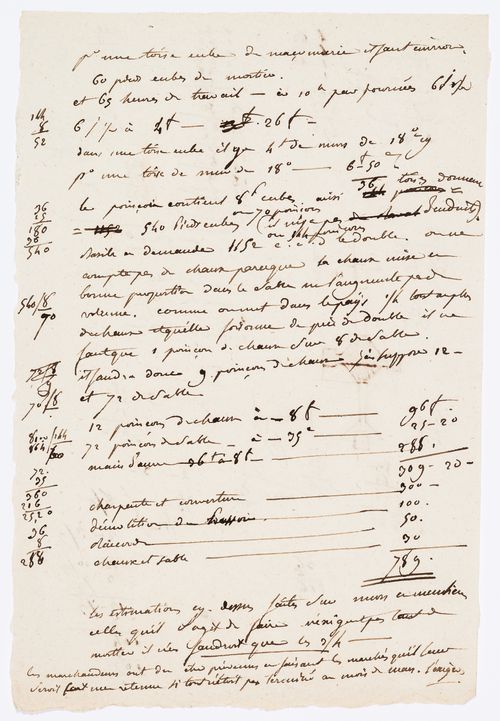 pr une toise cube de maçonnerie il faut environ
60 pieds cubes de mortier.
et 65 heures de travail — à 10 h par journées 6 j 1/2
6 j 1/2 à 4# — 26# =
dans une toise cube il y a 4t de murs de 18o
pr une toise de mur de 18o — 6# 50
le poinçon contient 8p cubes ainsi 36 toises donneront
= 540 pieds cubes ou 70 poinçons
demande 1152 ou 144 poinçons c. à d. le double. on ne
compte pas de chaux parceque la chaux mise en
bonne proportion dans le sable n'augmente pas de
volume. comme on met dans le pays 1/8 tout au plus
de chaux et qu'elle foisonne de près du double il ne
faut que 1 poinçon de chaux sur 8 de sable
il faudra donc 9 poinçons de chaux je suppose 12 —
et 72 de sable
12 poinçons de chaux à — 8# — 96#
72 poinçons de sable — à — 35c — 25-20
main d'œuvre 36t à 8# — 288.
309-20-
charpente et couverture — 300-
démolition — 100.
— 50.
chaux et sable — 30
789.
les estimations cy-dessus faites sur murs
celles qu'il s'agit de faire n'exigent pas tant de
mortier il n'en faudroit que les 3/4
les marchandeurs ont du être prévenus en faisant les marchés qu'il leur
seroit fait une retenue si tout n'étoit pas terminé au mois de mars.
144
8
52
36
15
180
36
540
540/8
90
72/8
9
70/8
72
35
360
216
25,20
36
8
288